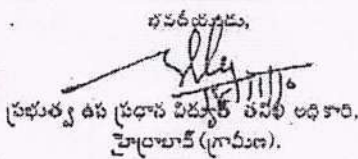 భవదీయుడు,
ప్రభుత్వ ఉప ప్రధాన విద్యుత్ తనిఖీ అధికారి,
హైద్రాబాద్ (గ్రామీణ).